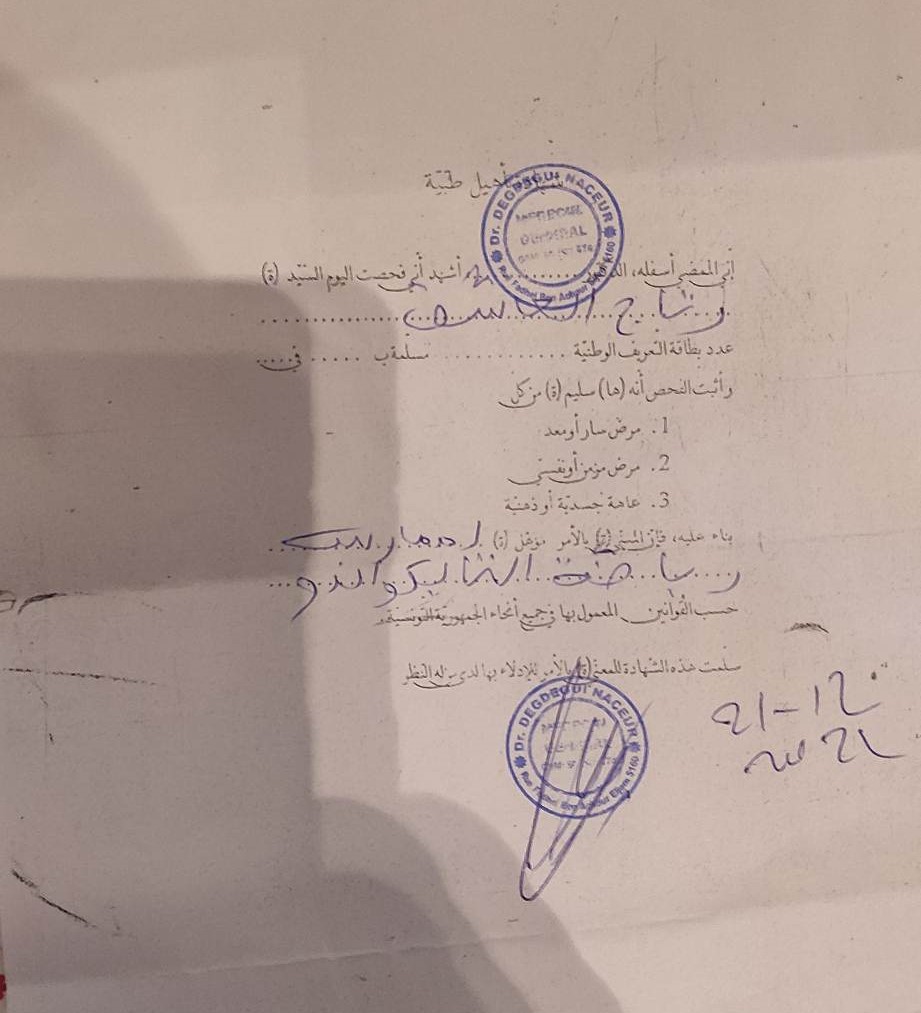 شهادة تأهيل طبيّة
Dr. DEGDEGUI NACEUR
MEDECIN
GENERAL
Rue Fadhel Ben Achour Eljem 5160
إنّي الممضي أسفله، الدكتور ............ أشهد أني فحصت اليوم السّيّد (ة)
عدد بطاقة التعريف الوطنيّة ............ مسلمة ب ...... في .....
وأثبت الفحص أنه (ها) سليم (ة) من كل
1. مرض سار أو معد
2. مرض مزمن أو نفسي
3. عاهة جسديّة أو ذهنيّة
بناء عليه، فإنّ المعني (ة) بالأمر مؤهّل (ة) لممارسة
رياضة التايكواندو
حسب القوانين المعمول بها في جميع أنحاء الجمهورية التونسية.
سلمت هذه الشهادة للمعني (ة) بالأمر للإدلاء بها لدى من له النظر
21-12
2021
Dr. DEGDEGUI NACEUR
MEDECIN
GENERAL
Rue Fadhel Ben Achour Eljem 5160